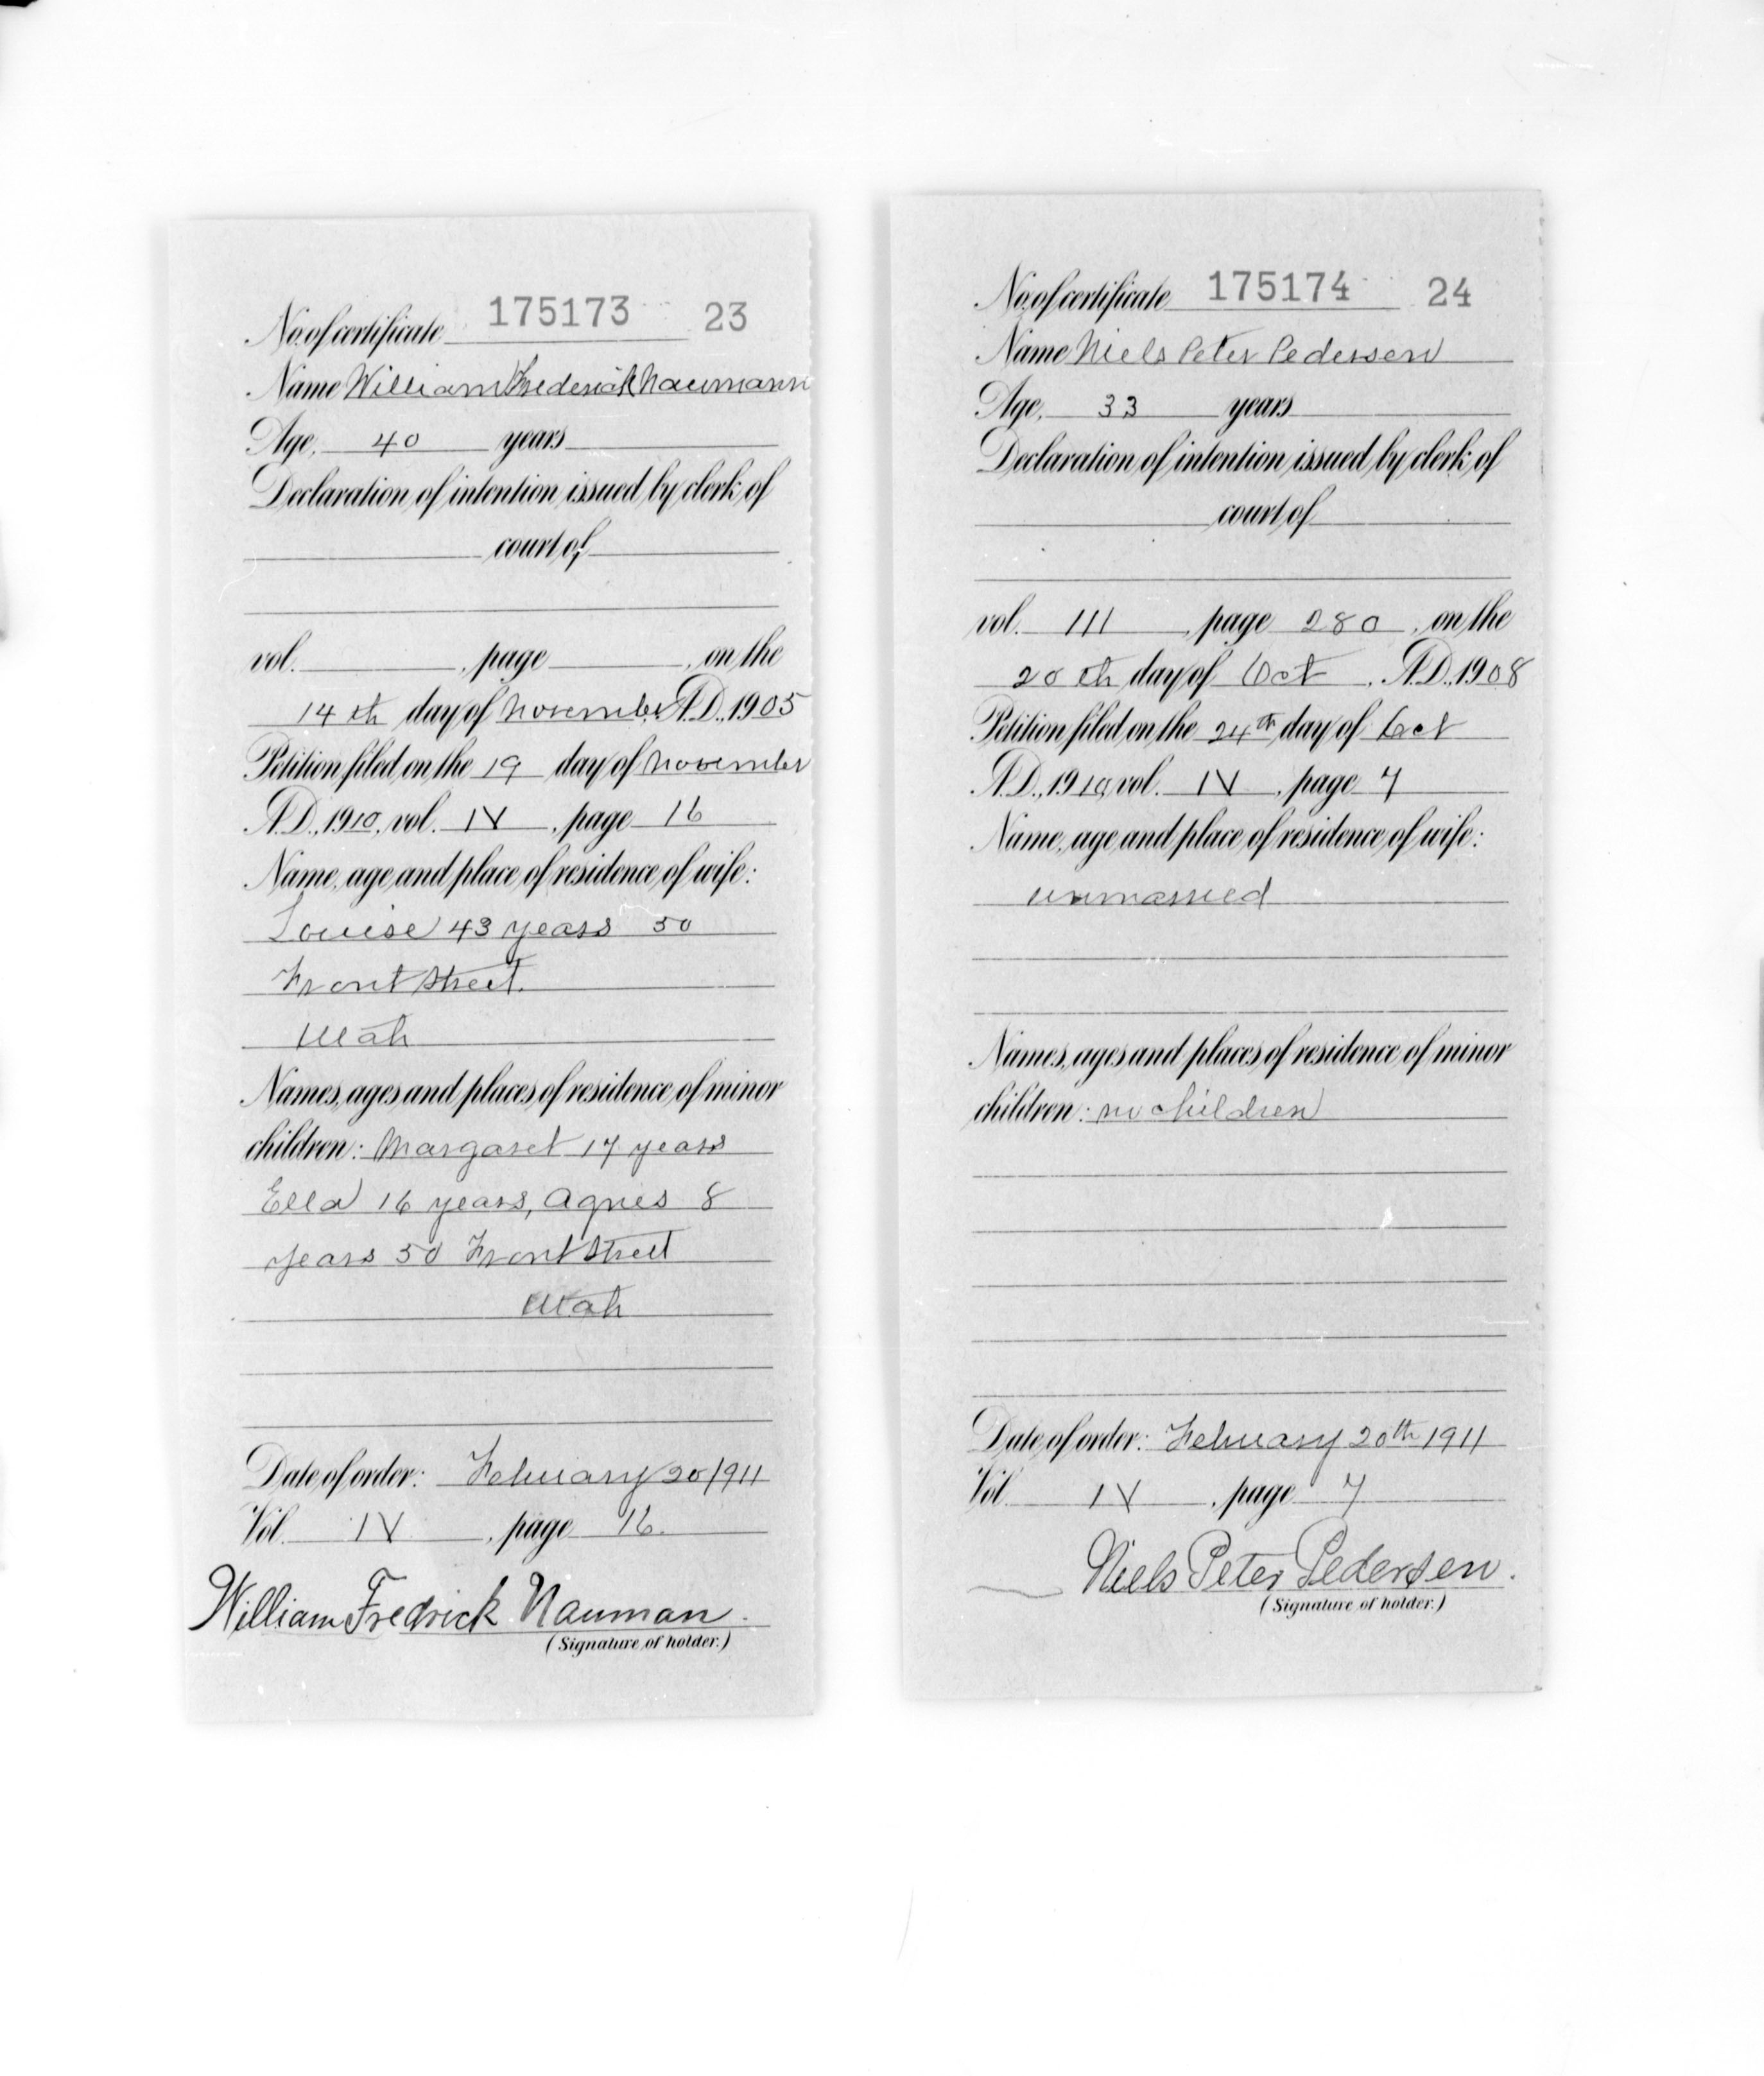 No. of certificate 175173 23
Name William Frederick Naumann
Age, 40 years
Declaration of intention issued by clerk of
court of
vol. , page , on the
14th day of November A.D., 1905
Petition filed on the 19 day of November
A.D., 1910, vol. IV , page 16
Name, age and place of residence of wife:
Louise 43 years 50
Front Street.
Utah
Names, ages and places of residence of minor
children: Margaret 17 years
Ella 16 years, Agnes 8
years 50 Front Street
Utah
Date of order: February 20 1911
Vol. IV , page 16.
William Fredrick Nauman.
(Signature of holder.)
No. of certificate 175174 24
Name Niels Peter Pedersen
Age, 33 years
Declaration of intention issued by clerk of
court of
vol. III , page 280 , on the
20th day of Oct , A.D., 1908
Petition filed on the 24th day of Oct
A.D., 1910, vol. IV , page 7
Name, age and place of residence of wife:
unmarried
Names, ages and places of residence of minor
children: no children
Date of order: February 20th 1911
Vol. IV , page 7
Niels Peter Pedersen.
(Signature of holder.)